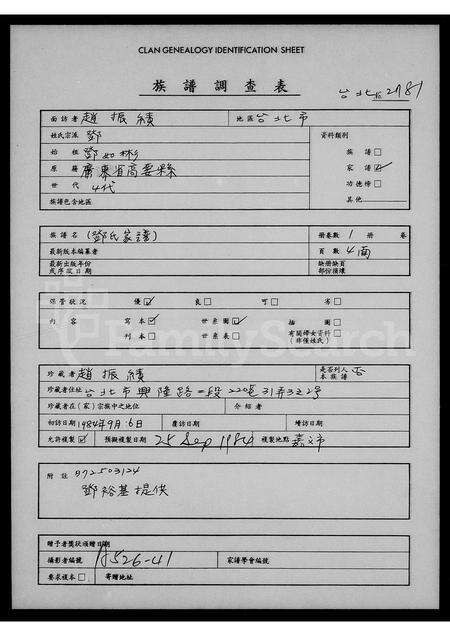 CLAN GENEALOGY IDENTIFICATION SHEET
族譜調查表
台北 2781
面訪者 趙振績 地區 台北市
姓氏宗派 鄧 資料類別
始祖 鄧如彬 族譜□
原籍 廣東省高要縣 家譜☑
世代 4代 功德榜□
族譜包含地區 其他
族譜名 (鄧氏家譜) 冊卷數 1 冊 卷
最新版本編纂者 頁數 4面
最新出版年份或序跋日期 缺冊缺頁部份損壞
保管狀況 優☑ 良□ 可□ 劣□
內容 寫本☑ 世系圖☑ 插圖□
刊本□ 世系表□ 有關婦女資料(非僅姓氏)□
珍藏者 趙振績 是否列入本族譜 否
珍藏者住址 台北市興隆路一段220巷31弄3之2號
珍藏者在(家)宗族中之地位 介紹者
初訪日期 1984年9月6日 覆訪日期 增訪日期
允許複製☑ 預擬複製日期 25 Sep 1984 複製地點 嘉市
附註 972503124
鄧裕基提供
贈予者獎狀頒贈日期
攝影者編號 526-41 家譜學會編號
要求複本□ 寄贈地址
FamilySearch